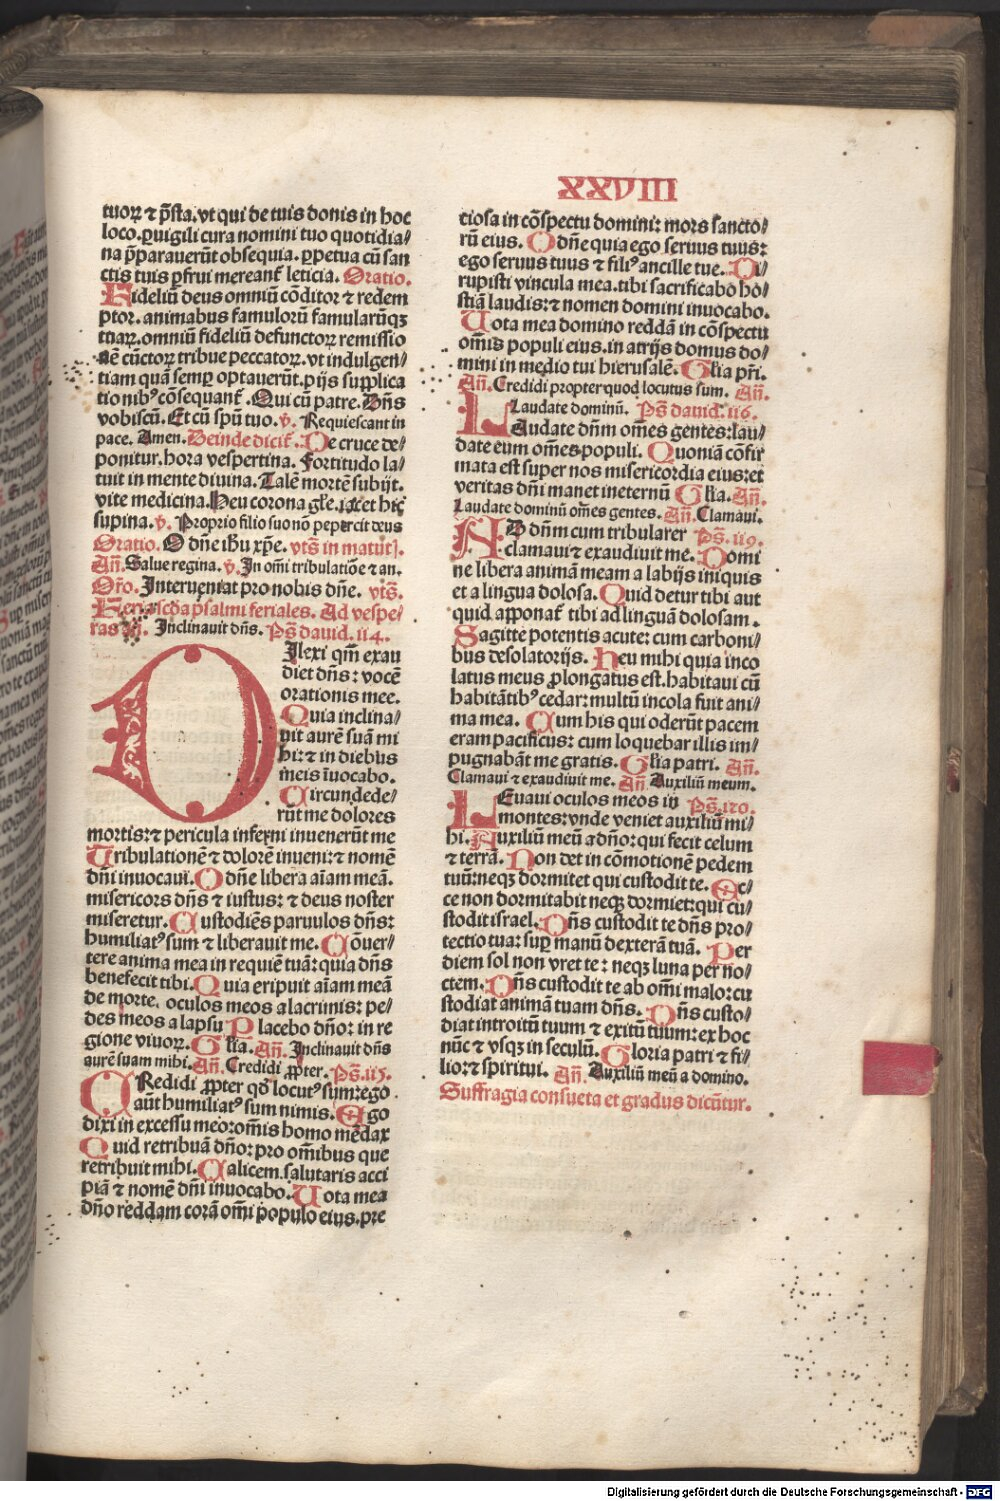 XXVIII
tuoꝝ ⁊ p̄sta. vt qui de tuis donis in hoc
loco. ꝑuigili cura nomini tuo quotidia/
na p̄parauerūt obsequia. ꝑpetua cū san
ctis tuis ꝑfrui mereant̄ leticia. Oratio.
Fideliū deus omniū cōditor ⁊ redem
ptor. animabus famulorū famularūqꝫ
tuaꝝ. omniū fideliū defunctoꝝ remissio
nē cūctoꝝ tribue peccatoꝝ. vt indulgen/
tiam quā semꝑ optauerūt. pijs supplica
tionibꝰ cōsequant̄. Qui cū patre. Dn̄s
vobiscū. Et cū spū tuo. ꝟ. Requiescant in
pace. Amen. Deinde dicit̄. De cruce de/
ponitur. hora vespertina. Fortitudo la/
tuit in mente diuina. Talē mortē subijt.
vite medicina. Heu corona gl̄e. iacet hic
supina. ꝟ. Proprio filio suo nō pepercit deus
Oratio. O dn̄e ihū xp̄e. vts̄ in matuti.
Añ. Salue regina. ꝟ. In om̄i tribulatiōe ⁊ an.
Or̄o. Interueniat pro nobis dn̄e. vts̄.
Feria scd̄a psalmi feriales. Ad vespe/
ras añ. Inclinauit dn̄s. Ps̄ dauid. 114.
DIlexi qm̄ exau
diet dn̄s: vocē
orationis mee.
Quia inclina/
uit aurē suā mi
hi: ⁊ in diebus
meis īuocabo.
Circundede/
rūt me dolores
mortis: ⁊ pericula inferni inuenerūt me
Tribulationē ⁊ dolorē inueni: ⁊ nomē
dn̄i inuocaui. O dn̄e libera aīam meā.
misericors dn̄s ⁊ iustus: ⁊ deus noster
miseretur. Custodiēs paruulos dn̄s:
humiliatꝰ sum ⁊ liberauit me. Cōuer/
tere anima mea in requiē tuā: quia dn̄s
benefecit tibi. Quia eripuit aīam meā
de morte. oculos meos a lacrimis: pe/
des meos a lapsu Placebo dn̄o: in re
gione viuoꝝ. Gl̄ia. Añ. Inclinauit dn̄s
aurē suam mihi. Añ. Credidi ꝓpter. Ps̄. 115.
CRedidi ꝓpter qd̄ locutꝰ sum: ego
aūt humiliatꝰ sum nimis. Ego
dixi in excessu meo: om̄is homo mēdax
Quid retribuā dn̄o: pro om̄ibus que
retribuit mihi. Calicem salutaris acci
piā ⁊ nomē dn̄i inuocabo. Uota mea
dn̄o reddam corā om̄i populo eius. pre
ciosa in cōspectu domini: mors sancto/
rū eius. O dn̄e quia ego seruus tuus:
ego seruus tuus ⁊ filiꝰ ancille tue. Di/
rupisti vincula mea. tibi sacrificabo ho/
stiā laudis: ⁊ nomen domini inuocabo.
Uota mea domino reddā in cōspectu
om̄is populi eius. in atrijs domus do/
mini in medio tui hierusalē. Gl̄ia pr̄i.
Añ. Credidi propter quod locutus sum. Añ.
Laudate dominū. Ps̄ dauid. 116.
LAudate dn̄m om̄es gentes: lau/
date eum om̄es populi. Quoniā cōfir
mata est super nos misericordia eius: et
veritas dn̄i manet ineternū Gl̄ia. Añ.
Laudate dominū om̄es gentes. Añ. Clamaui.
AD dn̄m cum tribularer Ps̄. 119.
clamaui ⁊ exaudiuit me. Domi
ne libera animā meam a labijs iniquis
et a lingua dolosa. Quid detur tibi aut
quid apponat̄ tibi ad linguā dolosam.
Sagitte potentis acute: cum carboni/
bus desolatorijs. Heu mihi quia inco
latus meus ꝓlongatus est. habitaui cū
habitātibꝰ cedar: multū incola fuit ani/
ma mea. Cum his qui oderūt pacem
eram pacificus: cum loquebar illis im/
pugnabāt me gratis. Gl̄ia patri. Añ.
Clamaui ⁊ exaudiuit me. Añ. Auxiliū meum.
LEuaui oculos meos in Ps̄. 120.
montes: vnde veniet auxiliū mi/
hi. Auxiliū meū a dn̄o: qui fecit celum
⁊ terrā. Non det in cōmotionē pedem
tuū: neqꝫ dormitet qui custodit te. Ec/
ce non dormitabit neqꝫ dormiet: qui cu/
stodit israel. Dn̄s custodit te dn̄s pro/
tectio tua: suꝑ manū dexterā tuā. Per
diem sol non vret te: neqꝫ luna per no/
ctem. Dn̄s custodit te ab om̄i malo: cu
stodiat animā tuam dn̄s. Dn̄s custo/
diat introitū tuum ⁊ exitū tuum: ex hoc
nūc ⁊ vsqꝫ in seculū. Gloria patri ⁊ fi/
lio: ⁊ spiritui. Añ. Auxiliū meū a domino.
Suffragia consueta et gradus dicūtur.
Digitalisierung gefördert durch die Deutsche Forschungsgemeinschaft - DFG